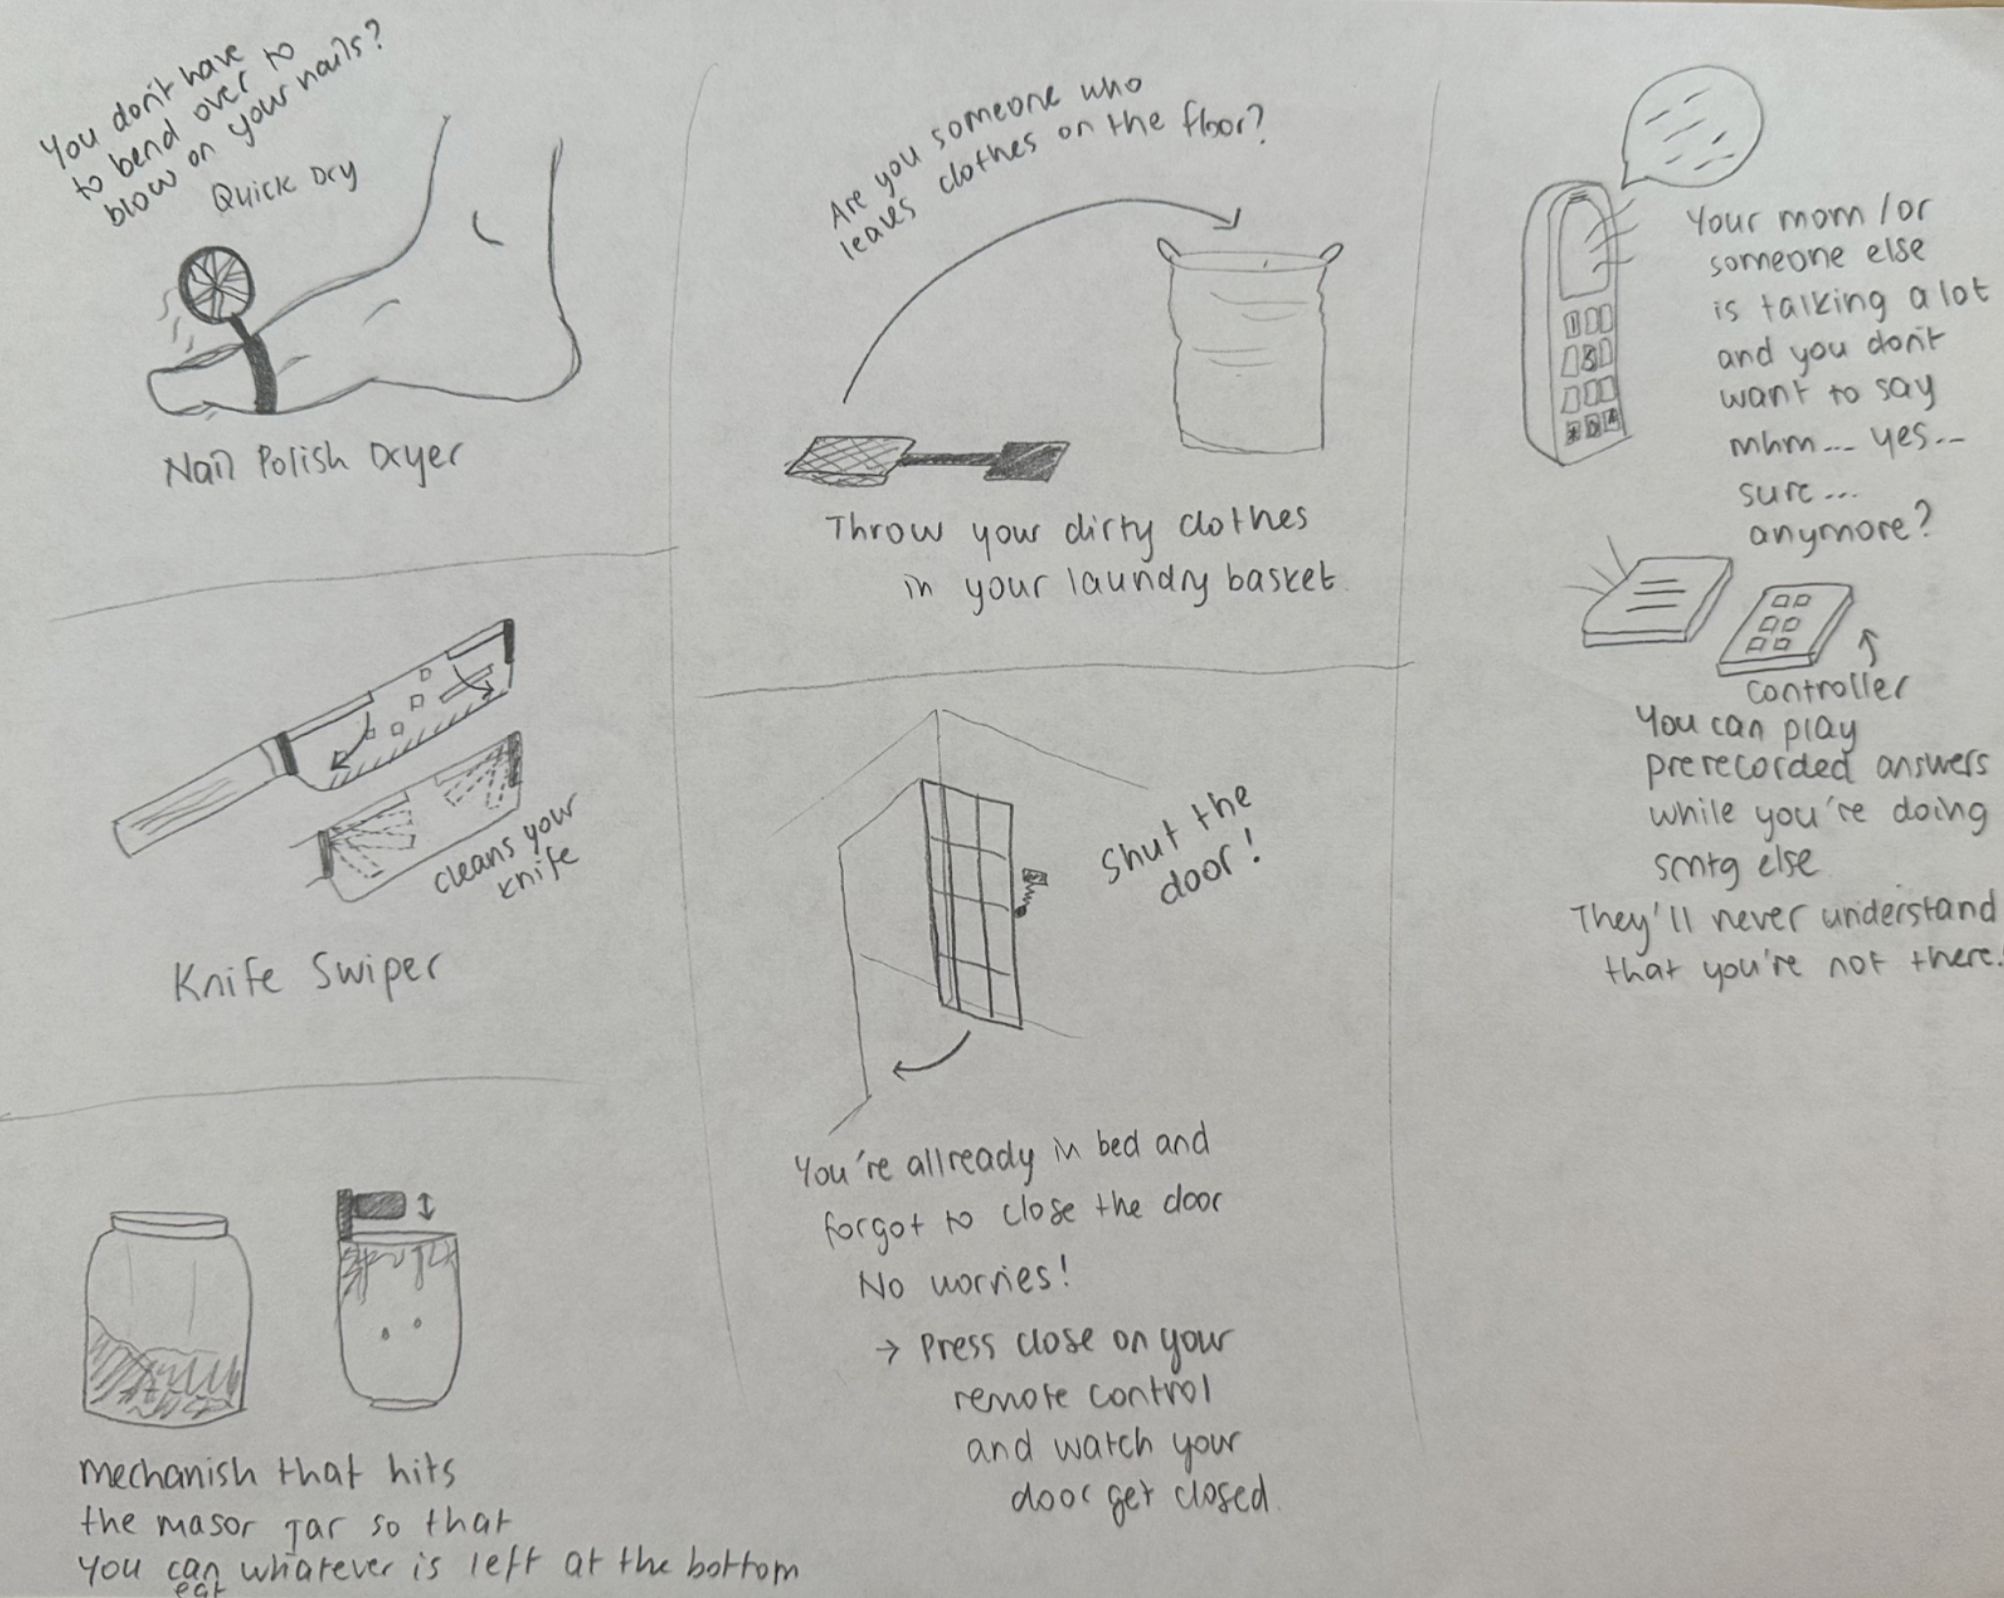 You don't have
to bend over to
blow on your nails?
Quick Dry
Nail Polish Dryer
cleans your
knife
Knife Swiper
mechanish that hits
the masor jar so that
you can whatever is left at the bottom
eat
Are you someone who
leaves clothes on the floor?
Throw your dirty clothes
in your laundry basket.
Shut the
door!
You're allready in bed and
forgot to close the door
No worries!
→ Press close on your
remote control
and watch your
door get closed.
Your mom / or
someone else
is talking a lot
and you don't
want to say
mhm... yes...
sure...
anymore?
controller
You can play
prerecorded answers
while you're doing
smtg else
They'll never understand
that you're not there.